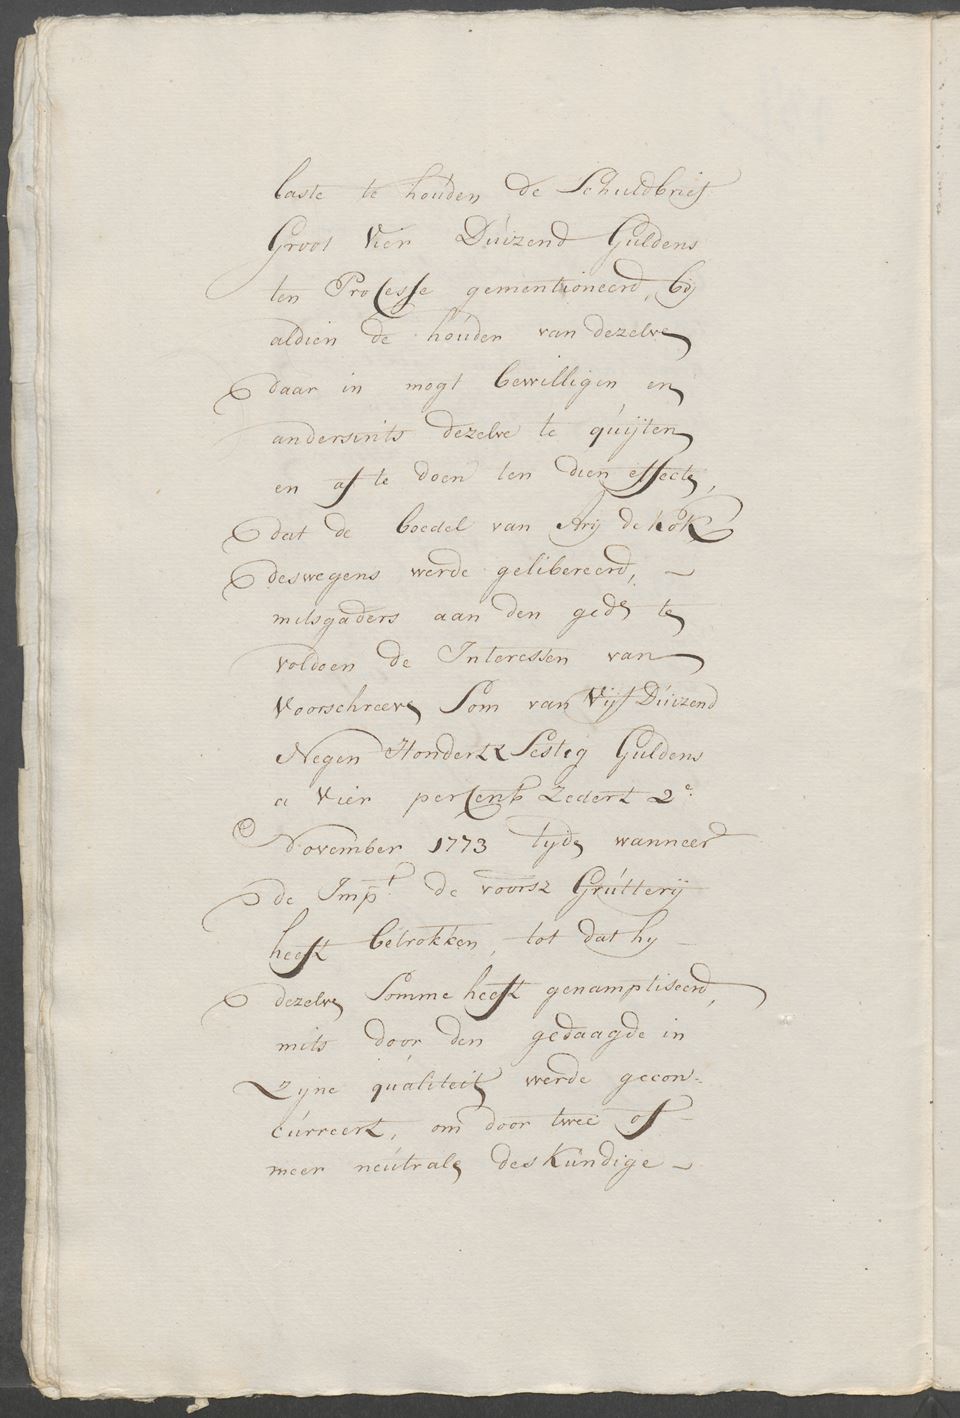 laste te houden de Schuldbrief
Groot Vier Duizend Guldens
ten Processe gementioneerd, by
aldien de houder van dezelve
daar in mogt bewilligen en
andersints dezelve te quijten
en af te doen ten dien effecte,
dat de boedel van Arij de Kok
deswegens werde gelibereerd, -
mitsgaders aan den gede te
voldoen de Interessen van
Voorschreeve Som van Vijf Duizend
Negen Hondert Sestig Guldens
a Vier percent Zedert 2e:
November 1773 tyde wanneer
de Impt. de voorsz Grutterij
heeft betrokken, tot dat hy -
dezelve Somme heeft genamptiseerd,
mits door den gedaagde in
Zyne qualiteit werde gecon-
curreert, om door twee of -
meer neutrale deskundige -